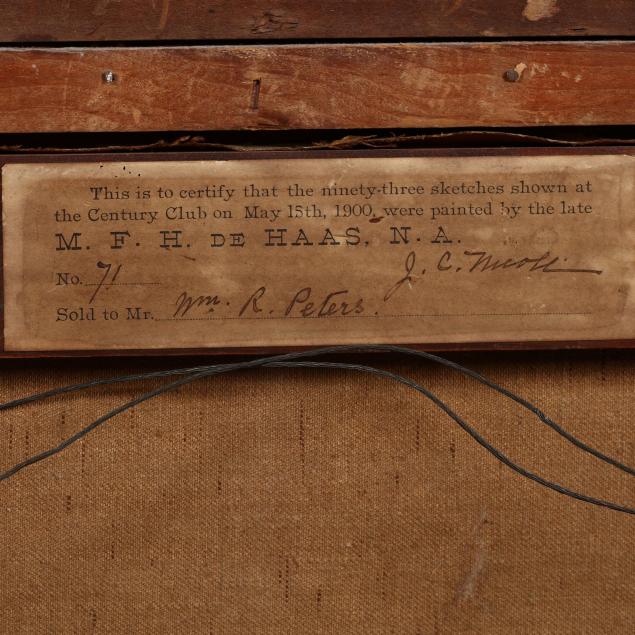 This is to certify that the ninety-three sketches shown at
the Century Club on May 15th, 1900, were painted by the late
M. F. H. DE HAAS, N. A.
No. 71
J. C. Nicoll
Sold to Mr. Wm. R. Peters.